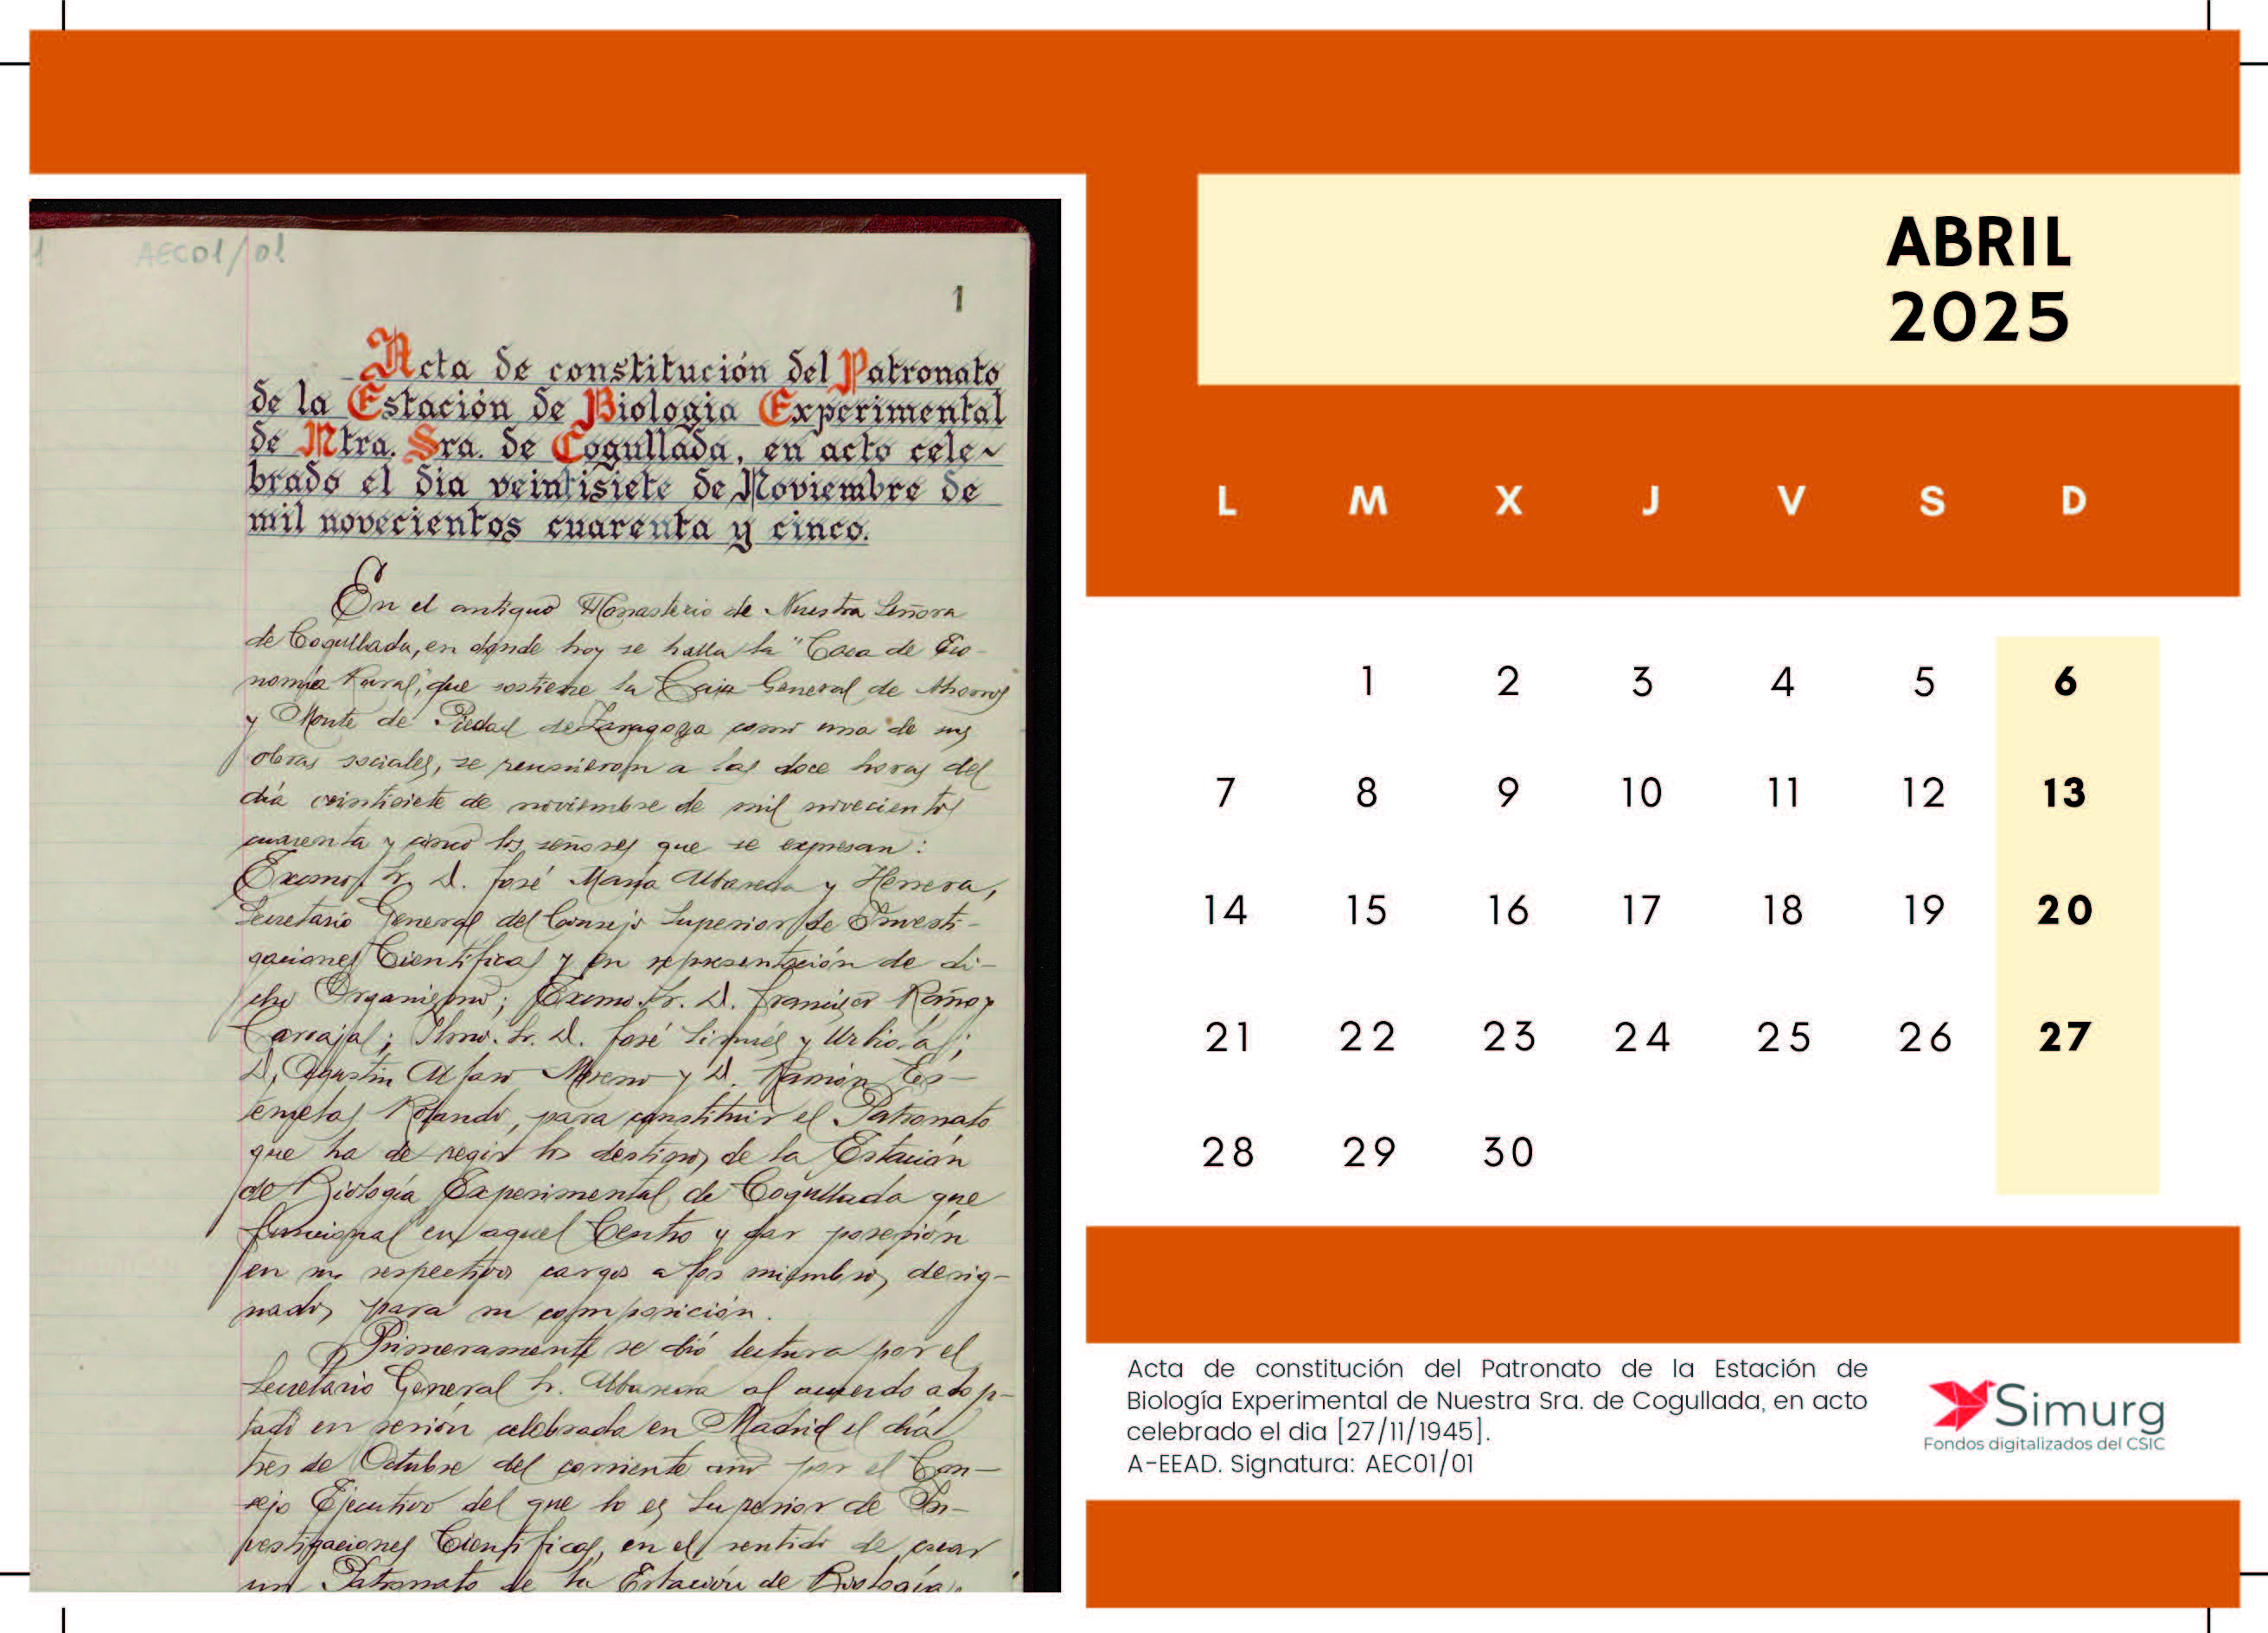 1 AEC01/01
1
Acta de constitución del Patronato
de la Estación de Biologia Experimental
de Ntra. Sra. de Cogullada, en acto cele~
brado el dia veintisiete de Noviembre de
mil novecientos cuarenta y cinco.
En el antiguo Monasterio de Nuestra Señora
de Cogullada, en donde hoy se halla la "Casa de Eco-
nomía Rural", que sostiene la Caja General de Ahorros
y Monte de Piedad de Zaragoza como una de sus
obras sociales, se reunieron a las doce horas del
día veintisiete de noviembre de mil novecientos
cuarenta y cinco los señores que se expresan:
Excmo. Sr. D. José María Albareda y Herrera,
Secretario General del Consejo Superior de Investi-
gaciones Científicas y en representación de di-
cho Organismo; Excmo. Sr. D. Francisco
Carvajal; Ilmo. Sr. D. José Sinués y Urbiola;
D. Agustín Alfaro Moreno y D. Ramón Es-
Rolando, para constituir el Patronato
que ha de regir los destinos de la Estación
de Biología Experimental de Cogullada que
funcional en aquel Centro y dar posesión
en sus respectivos cargos a los miembros desig-
nados para su composición.
Primeramente se dió lectura por el
Secretario General Sr. Albareda al acuerdo adop-
tado en sesión celebrada en Madrid el día
tres de Octubre del corriente año por el Con-
sejo Ejecutivo del que lo es Superior de In-
vestigaciones Científicas, en el sentido de crear
un Patronato de la Estación de Biología
ABRIL
2025
L M X J V S D
1 2 3 4 5 6
7 8 9 10 11 12 13
14 15 16 17 18 19 20
21 22 23 24 25 26 27
28 29 30
Acta de constitución del Patronato de la Estación de
Biología Experimental de Nuestra Sra. de Cogullada, en acto
celebrado el dia [27/11/1945].
A-EEAD. Signatura: AEC01/01
Simurg
Fondos digitalizados del CSIC